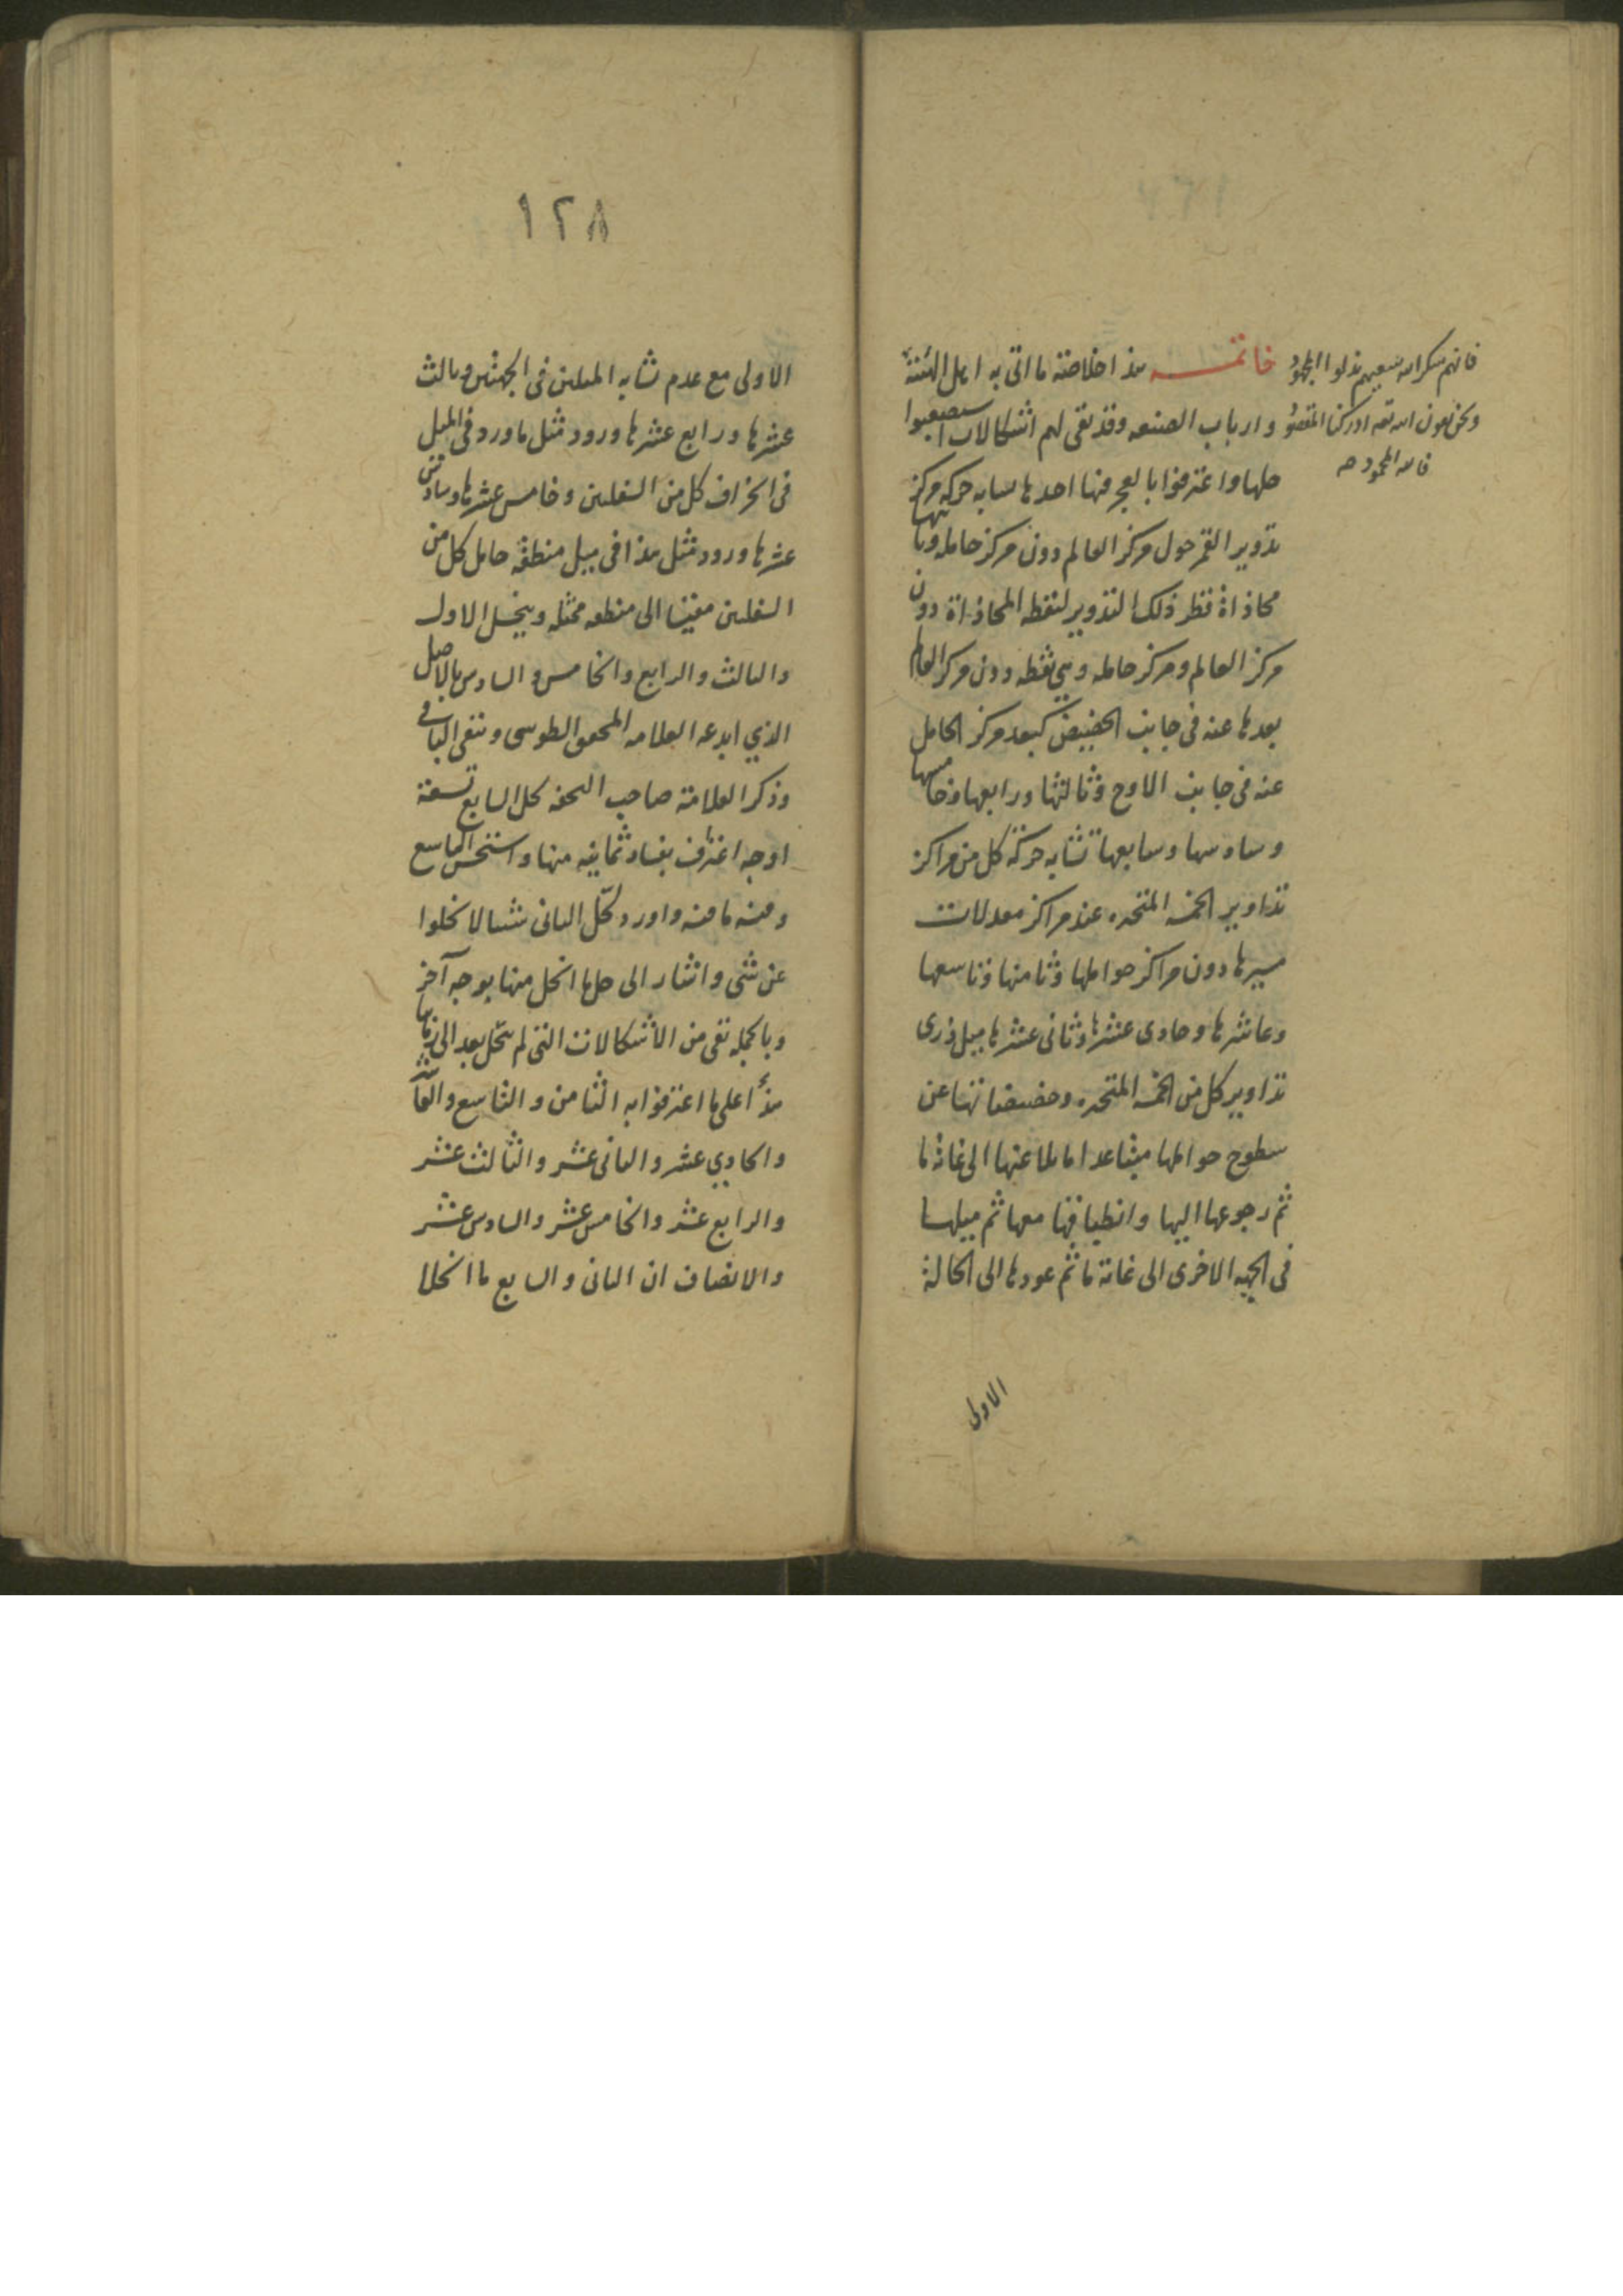 خاتمـــــه هذا خلاصة ما اتى به اهل الهيئة
وارباب الصنعه وقد بقى لهم اشكالات استصعبوا
حلها واعترفوا بالعجز فنها احدها تشابه حركة مركز
تدوير القمر حول مركز العالم دون مركز حامله وثانيها
محاذاة قطر ذلك التدوير لنقطه المحاذاة دون
مركز العالم ومركز حامله وهي نقطه دون مركز العالم
بعدها عنه فى جانب الحضيض كبعد مركز الحامل
عنه فى جانب الاوج وثالثها ورابعها وخامسها
وسادسها وسابعها تشابه حركة كل من مراكز
تداوير الخمسه المتحيره عند مراكز معدلات
مسيرها دون مراكز حواملها وثامنها وتاسعها
وعاشرها وحادى عشرها وثانى عشرها ميل ذرى
تداوير كل من الخمسه المتحيره وحضيضاتها عن
سطوح حواملها متباعدا مايلا عنها الى غاية ما
ثم رجوعها اليها وانطباقها معها ثم ميلها
فى الجهه الاخرى الى غاية ما ثم عودها الى الحالة
الاولى
فانهم شكر الله سعيهم بذلوا المجهود
ونحن بعون الله تعه ادركنا المقصود
فالله المحمود
١٢٨
الاولى مع عدم تشابه الميلين فى الجهتين وثالث
عشرها ورابع عشرها ورود مثل ما ورد فى الميل
فى انحراف كل من السفليين وخامس عشرها وسادس
عشرها ورود مثل هذا فى ميل منطقة حامل كل من
السفليين مقيسا الى منطقه ممثله وينحل الاول
والثالث والرابع والخامس والسادس بالاصل
الذي ابدعه العلامه المحقق الطوسى وبقى الباقى
وذكر العلامة صاحب التحفه لحل السابع تسعة
اوجه اعترف بفساد ثمانيه منها واستحسن التاسع
وفيه ما فيه واورد لحل الثانى شيئا لا يخلوا
عن شئ واشار الى حل ما انحل منها بوجه آخر
وبالجمله بقى من الاشكالات التى لم تنحل بعد الى زماننا
هذا على ما اعترفوا به الثامن والتاسع والعاشر
والحادي عشر والثانى عشر والثالث عشر
والرابع عشر والخامس عشر والسادس عشر
والانصاف ان الثانى والسابع ما انحلا